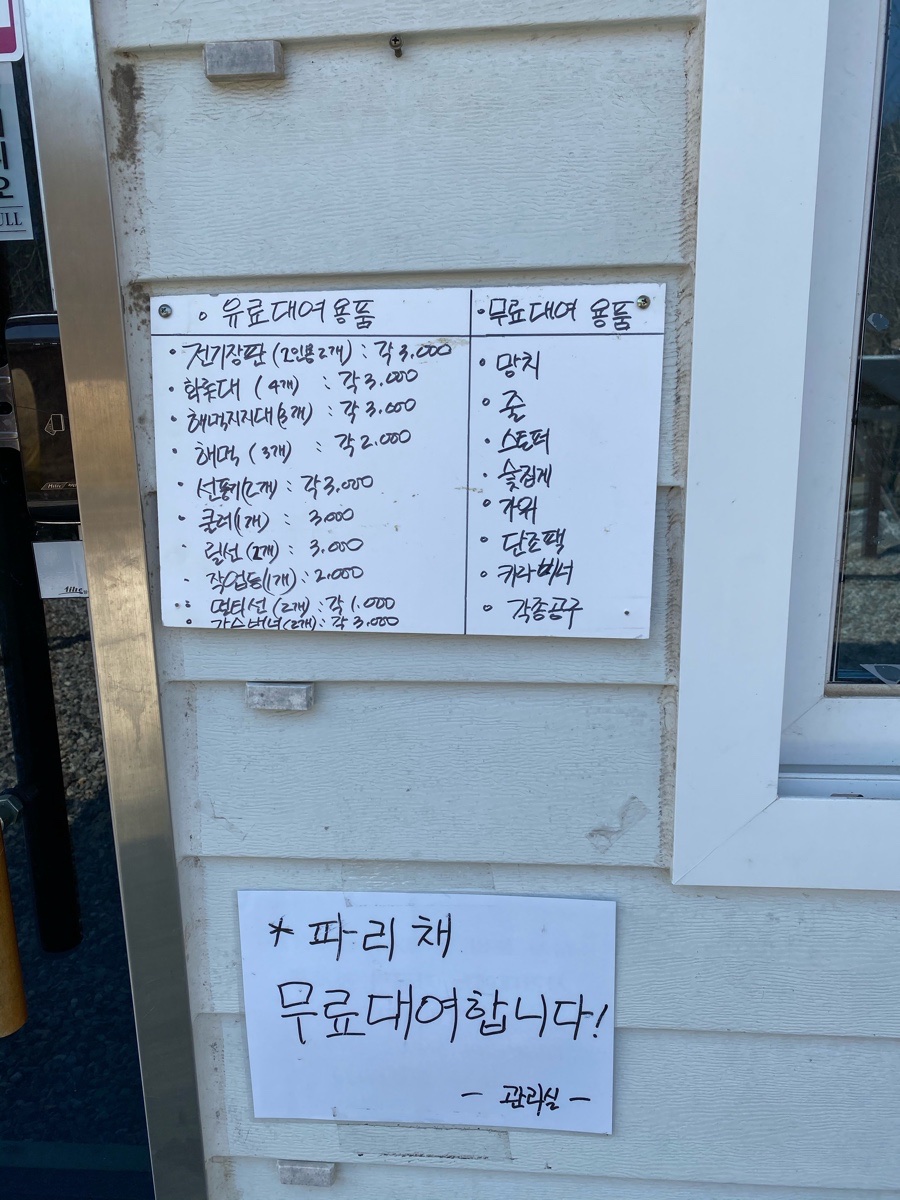 ULL
◦ 유료대여용품
• 전기장판 (2인용2개) : 각 3.000
• 화롯대 (4개) : 각 3.000
• 해먹지지대(3개) : 각 3.000
• 해먹 (3개) : 각 2.000
• 선풍기(2개) : 각 3.000
• 쿨러(1개) : 3.000
• 릴선 (2개) : 3.000
• 작업등(1개) : 2.000
• 멀티선 (2개) : 각 1.000
• 가스버너(2개) : 각 3.000
•무료대여 용품
• 망치
• 줄
• 스토퍼
• 숯집게
• 가위
◦ 단조팩
• 카라비너
◦ 각종공구
* 파리채
무료대여합니다!
- 관리실 -